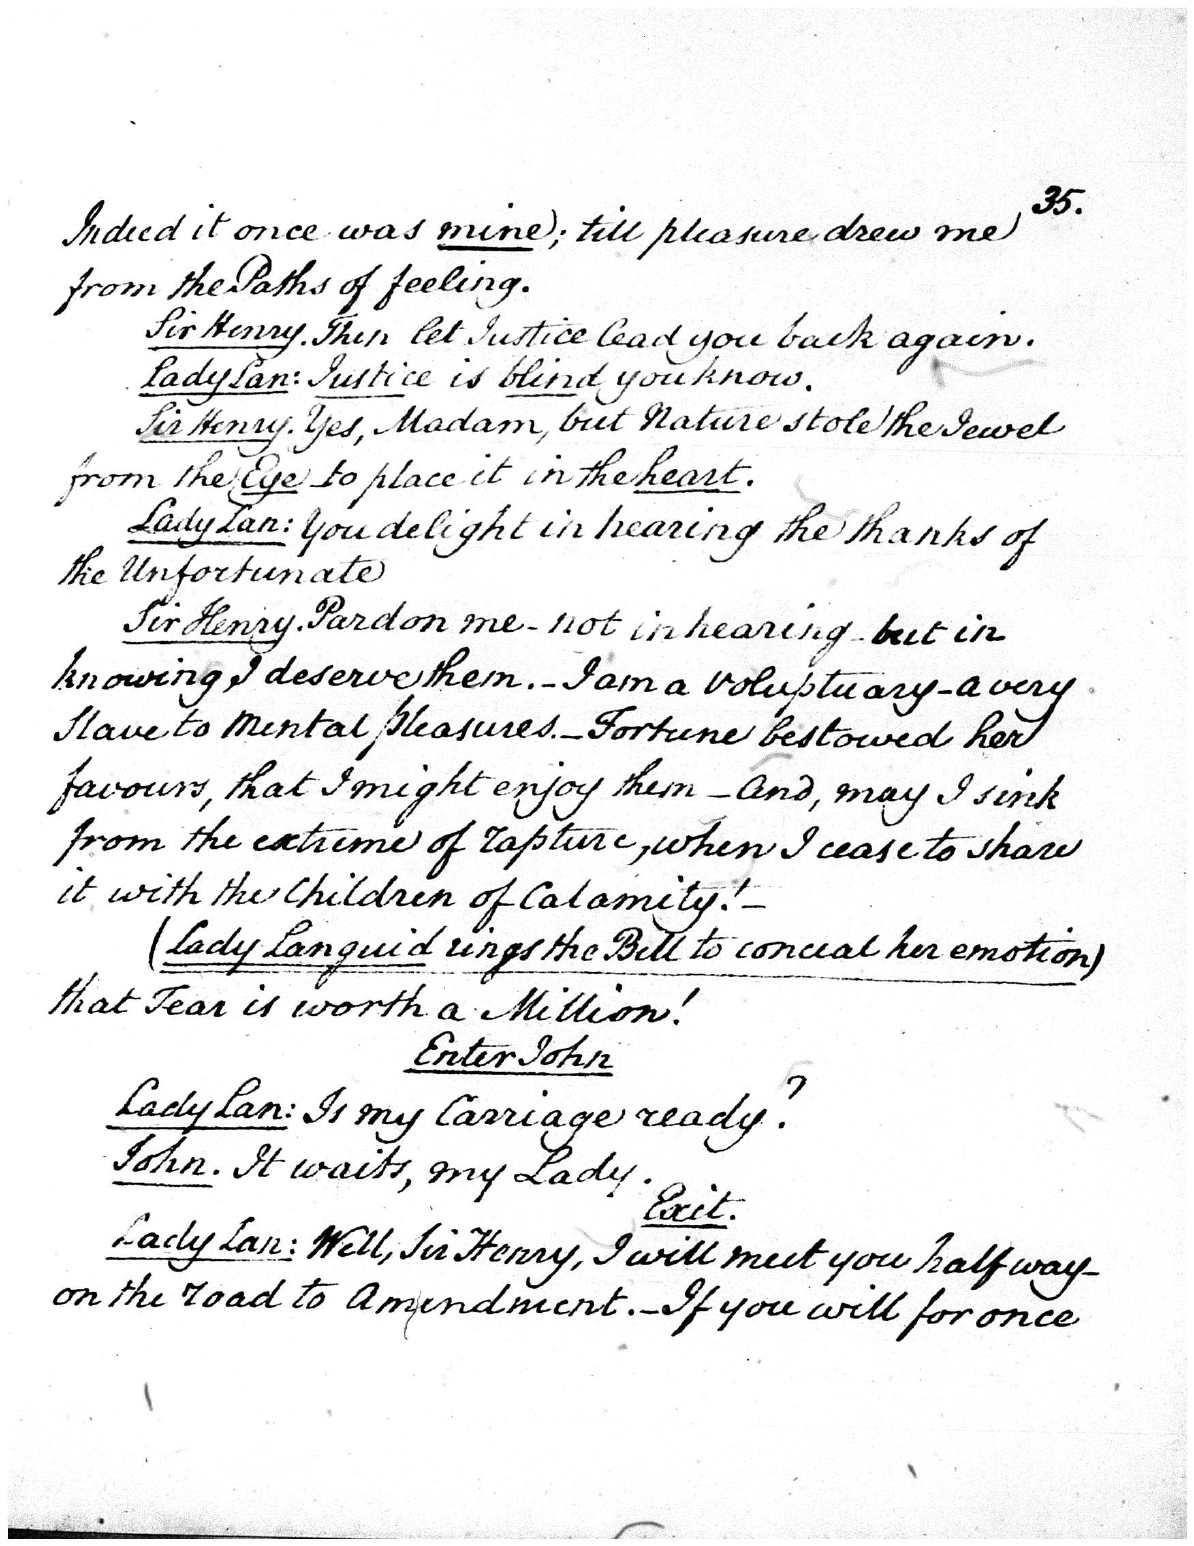 35.
Indeed it once was mine; till pleasure drew me
from the Paths of feeling.
Sir Henry. Then let Justice lead you back again.
Lady Lan: Justice is blind you know.
Sir Henry. Yes, Madam, but Nature stole the Jewel
from the Eye to place it in the heart.
Lady Lan: You delight in hearing the thanks of
the Unfortunate
Sir Henry. Pardon me - not in hearing - but in
knowing I deserve them. - I am a voluptuary - a very
Slave to Mental pleasures. - Fortune bestowed her
favours, that I might enjoy them - And, may I sink
from the extreme of rapture, when I cease to share
it with the Children of Calamity! -
(Lady Languid rings the Bell to conceal her emotion)
that Tear is worth a Million!
Enter John
Lady Lan: Is my Carriage ready?
John. It waits, my Lady.
Exit.
Lady Lan: Well, Sir Henry, I will meet you half way -
on the road to Amendment. - If you will for once